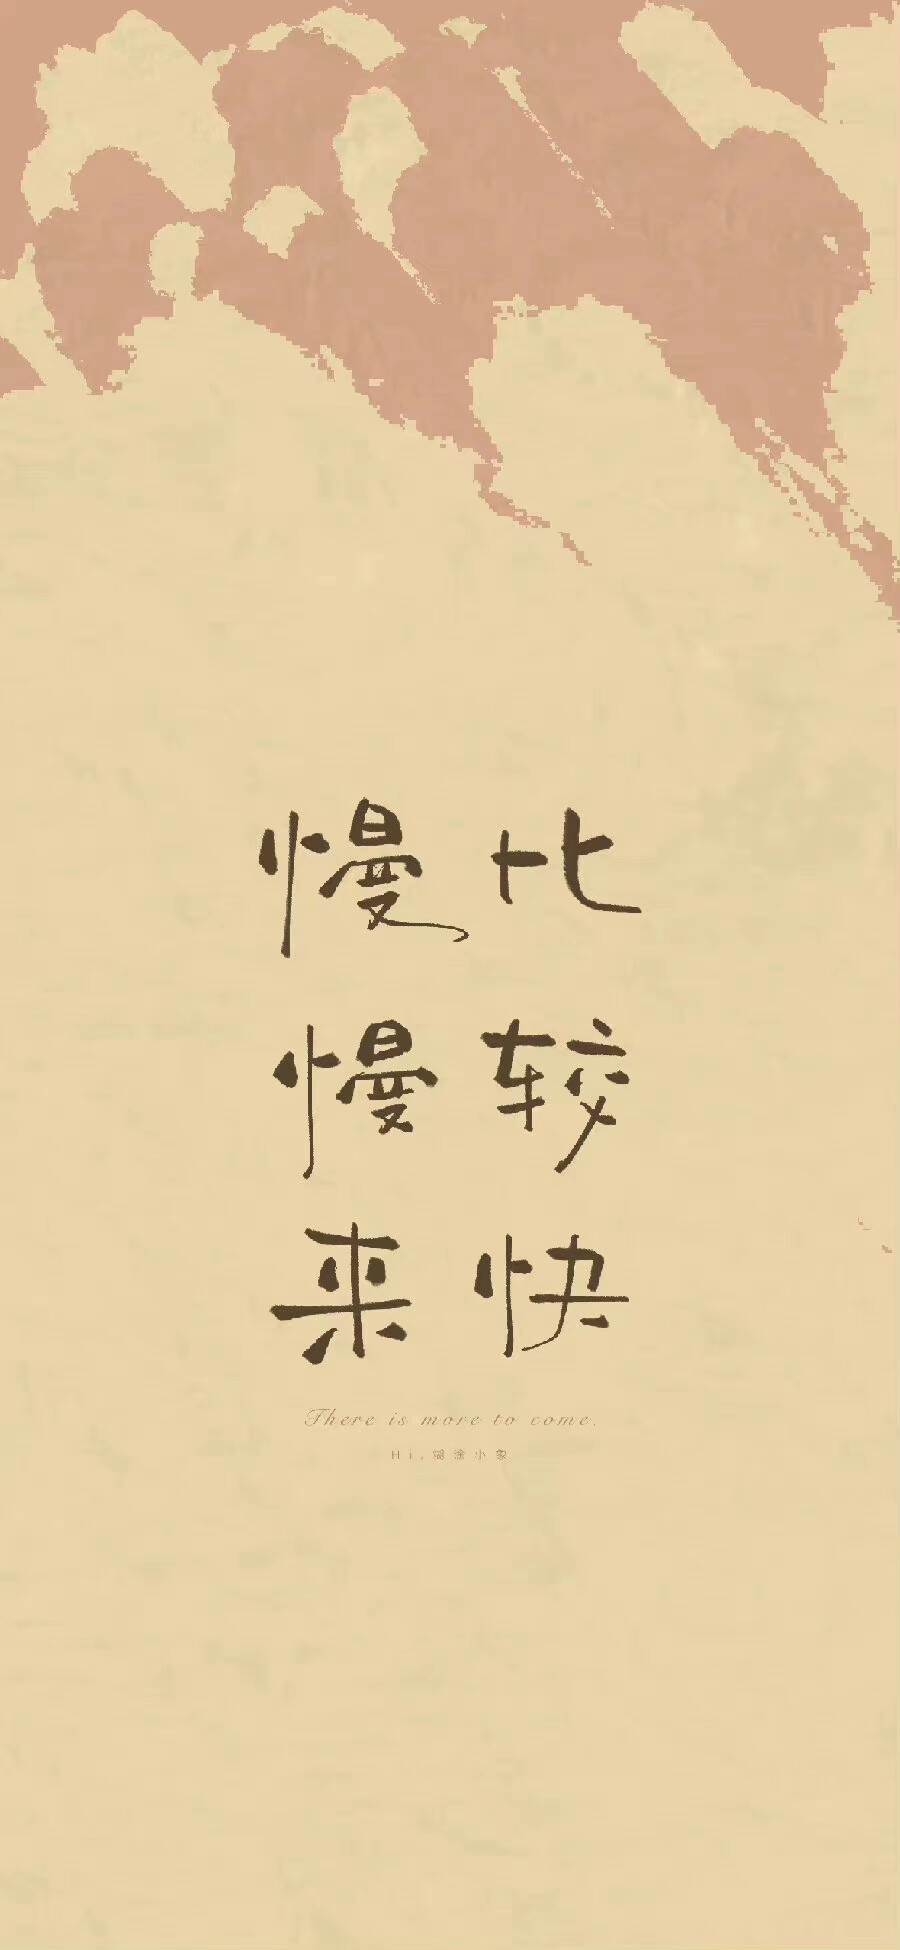 慢慢来
比较快
There is more to come.
Hi,糊涂小象